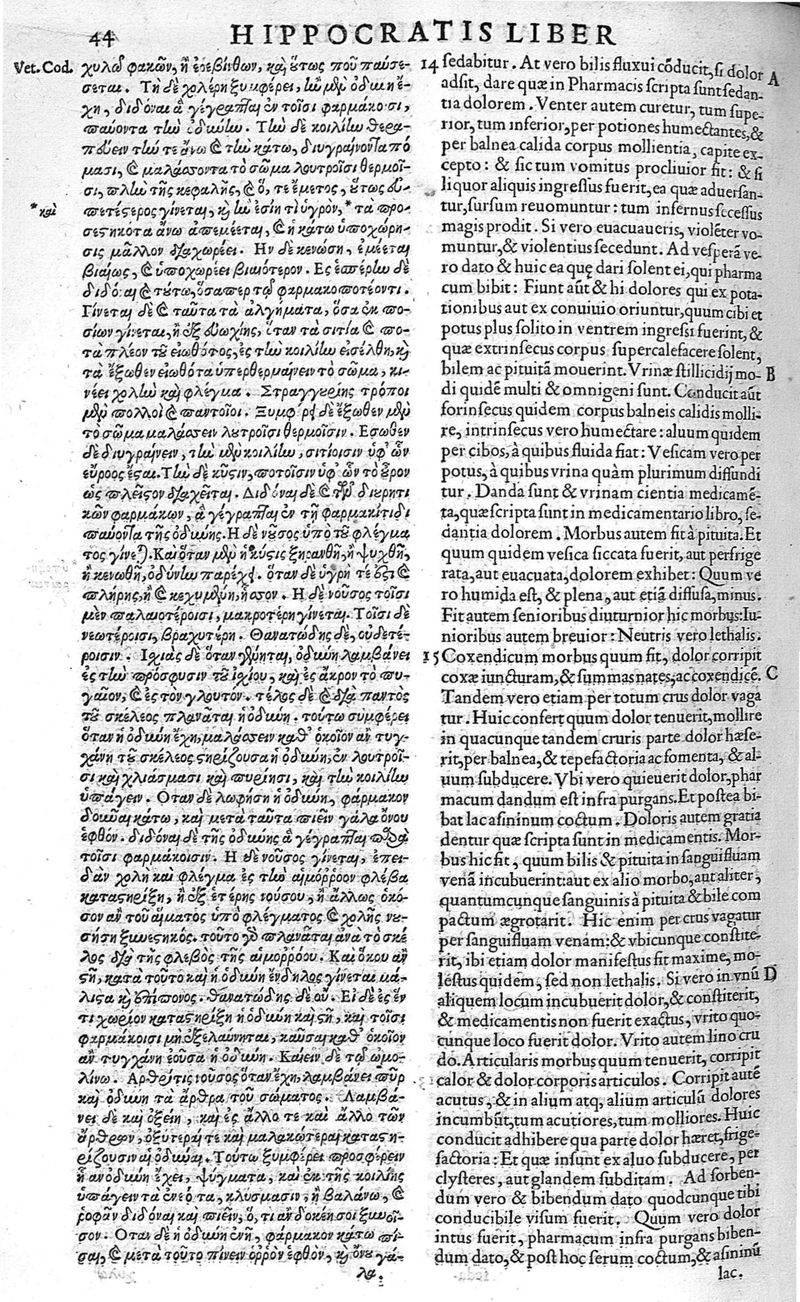 44 HIPPOCRATIS LIBER
Vet. Cod.
χυλῷ φακῶν, ἢ ἐρεβίνθων, καὶ οὕτως πού παύσε-
σεται. Τῇ δὲ χολέρῃ ξυμφέρει, ἢν μὲν ὀδύνη ἔ-
χῃ, διδόναι ἃ γέγραπται ἐν τοῖσι φαρμάκοισι,
παύοντα τὴν ὀδύνην. Τὴν δὲ κοιλίην θερα-
πεύειν τήν τε ἄνω καὶ τὴν κάτω, διυγραίνοντα πό
μασι, καὶ μαλάσσοντα τὸ σῶμα λουτροῖσι θερμοῖ-
σι, πλὴν τῆς κεφαλῆς, καὶ ὅ, τε ἔμετος, οὕτως εὐ-
*καὶ
πετέστερος γίνεται, κἢν ἐσίῃ τι ὑγρὸν, * τὰ προ-
σεστηκότα ἄνω ἀπεμέεται, καὶ ἡ κάτω ὑποχώρη-
σις μᾶλλον διαχωρέει. Ην δὲ κενώσῃ, ἐμέεται
βιαίως, καὶ ὑποχωρέει βιαιότερον. Ες ἑσπέρην δὲ
διδόναι καὶ τούτῳ, ὅσαπερ τῷ φαρμακοποτέοντι.
Γίνεται δὲ καὶ ταῦτα τὰ ἀλγήματα, ὅσα ἐκ πο-
σίων γίνεται, ἢ ἐξ εὐωχίης, ὅταν τὰ σιτία καὶ πο-
τὰ πλέον τοῦ εἰωθότος, ἐς τὴν κοιλίην εἰσέλθῃ, καὶ
τὰ ἔξωθεν εἰωθότα ὑπερθερμαίνειν τὸ σῶμα, κι-
νέει χολὴν καὶ φλέγμα. Στραγγουρίης τρόποι
μὲν πολλοὶ καὶ παντοῖοι. Ξυμφέρει δὲ ἔξωθεν μὲν
τὸ σῶμα μαλάσσειν λουτροῖσι θερμοῖσιν. Εσωθεν
δὲ διυγραίνειν, τὴν μὲν κοιλίην, σιτίοισιν ὑφ' ὧν
εὔροος ἔσται. Τὴν δὲ κύστιν, ποτοῖσιν ὑφ' ὧν τὸ οὖρον
ὡς πλεῖστον διαχεῖται. Διδόναι δὲ καὶ τῶν διουρητι
κῶν φαρμάκων, ἃ γέγραπται ἐν τῇ φαρμακίτιδι
παύοντα τῆς ὀδύνης. Η δὲ νοῦσος ὑπὸ τοῦ φλέγμα
τος γίνεται. Καὶ ὅταν μὲν ἡ κύστις ξηρανθῇ, ἢ ψυχθῇ,
ἢ κενωθῇ, ὀδύνην παρέχει. ὅταν δὲ ὑγρή τε ἔῃ καὶ
πλήρης, ἢ κεχυμένη, ἧσσον. Η δὲ νοῦσος τοῖσι
μὲν παλαιοτέροισι, μακροτέρη γίνεται. Τοῖσι δὲ
νεωτέροισι, βραχυτέρη. Θανατώδης δὲ, οὐδετέ-
ροισιν. Ισχιὰς δὲ ὅταν γένηται, ὀδύνη λαμβάνει
ἐς τὴν πρόσφυσιν τοῦ ἰσχίου, καὶ ἐς ἄκρον τὸ πυ-
γαῖον, καὶ ἐς τὸν γλουτόν. τέλος δὲ καὶ διὰ παντὸς
τοῦ σκέλεος πλανᾶται ἡ ὀδύνη. τούτῳ συμφέρει
ὅταν ἡ ὀδύνη ἔχῃ, μαλάσσειν καθ' ὁκοῖον ἂν τυγ-
χάνῃ τοῦ σκέλεος στηρίζουσα ἡ ὀδύνη, ἐν λουτροῖ-
σι καὶ χλιάσμασι καὶ πυρίῃσι, καὶ τὴν κοιλίην
ὑπάγειν. Οταν δὲ λωφήσῃ ἡ ὀδύνη, φάρμακον
δοῦναι κάτω, καὶ μετὰ ταῦτα πιεῖν γάλα ὄνου
ἑφθόν. διδόναι δὲ τῆς ὀδύνης ἃ γέγραπται παρὰ
τοῖσι φαρμάκοισιν. Η δὲ νοῦσος γίνεται, ἐπει-
δὰν χολὴ καὶ φλέγμα ἐς τὴν αἱμόρροον φλέβα
καταστηρίξῃ, ἢ ἐξ ἑτέρης νούσου, ἢ ἄλλως ὁκό-
σον ἂν τοῦ αἵματος ὑπὸ φλέγματος καὶ χολῆς νο-
σήσῃ ξυνεστηκός. τοῦτο γὰρ πλανᾶται ἀνὰ τὸ σκέ
λος διὰ τῆς φλεβὸς τῆς αἱμορρόου. Καὶ ὅκου ἂν
στῇ, κατὰ τοῦτο καὶ ἡ ὀδύνη ἔνδηλος γίνεται μά-
λιστα καὶ ἐπίπονος. θανατώδης δὲ οὔ. Εἰ δὲ ἐς ἕν
τι χωρίον καταστηρίξῃ ἡ ὀδύνη καὶ στῇ, καὶ τοῖσι
φαρμάκοισι μὴ ἐξελαύνηται, καῦσαι καθ' ὁκοῖον
ἂν τυγχάνῃ ἐοῦσα ἡ ὀδύνη. Καίειν δὲ τῷ ὠμο-
λίνῳ. Αρθρῖτις νοῦσος ὅταν ἔχῃ, λαμβάνει πῦρ
καὶ ὀδύνη τὰ ἄρθρα τοῦ σώματος. Λαμβά-
νει δὲ καὶ ὀξείη, καὶ ἐς ἄλλο τε καὶ ἄλλο τῶν
ἄρθρων, ὀξύτεραί τε καὶ μαλακώτεραι καταστη-
ρίζουσιν αἱ ὀδύναι. Τούτῳ ξυμφέρει προσφέρειν
ᾗ ἂν ὀδύνη ἔχει, ψύγματα, καὶ ἐκ τῆς κοιλίης
ὑπάγειν τὰ ἐνεόντα, κλύσμασιν, ἢ βαλάνῳ, καὶ
ῥοφᾶν διδόναι καὶ πιεῖν, ὅ, τι ἂν δοκέῃ σοι ξυνοῖ-
σον. Οταν δὲ ἡ ὀδύνη ἐνῇ, φάρμακον κάτω πῖ-
σαι, καὶ μετὰ τοῦτο πίνειν ὀρρὸν ἑφθὸν, καὶ ὄνου γά-
λα.
14 sedabitur. At vero bilis fluxui cōducit, si dolor A
adsit, dare quæ in Pharmacis scripta sunt sedan-
tia dolorem. Venter autem curetur, tum supe-
rior, tum inferior, per potiones humectantes, &
per balnea calida corpus mollientia, capite ex-
cepto: & sic tum vomitus procliuior fit: & si
liquor aliquis ingressus fuerit, ea quæ aduersan-
tur, sursum reuomuntur: tum infernus secessus
magis prodit. Si vero euacuaueris, violēter vo-
muntur, & violentius secedunt. Ad vesperā ve-
ro dato & huic ea quę dari solent ei, qui pharma
cum bibit: Fiunt aūt & hi dolores qui ex pota-
tionibus aut ex conuiuio oriuntur, quum cibi et
potus plus solito in ventrem ingressi fuerint, &
quæ extrinsecus corpus supercalefacere solent,
bilem ac pituitā mouerint. Vrinæ stillicidij mo- B
di quidē multi & omnigeni sunt. Conducit aūt
forinsecus quidem corpus balneis calidis molli-
re, intrinsecus vero humectare: aluum quidem
per cibos, à quibus fluida fiat: Vesicam vero per
potus, à quibus vrina quàm plurimum diffundi
tur. Danda sunt & vrinam cientia medicamē-
ta, quæ scripta sunt in medicamentario libro, se-
dantia dolorem. Morbus autem fit à pituita. Et
quum quidem vesica siccata fuerit, aut perfrige
rata, aut euacuata, dolorem exhibet: Quum ve
ro humida est, & plena, aut etiā diffusa, minus.
Fit autem senioribus diuturnior hic morbus: Iu-
nioribus autem breuior: Neutris vero lethalis.
15 Coxendicum morbus quum fit, dolor corripit
coxæ iuncturam, & summas nates, ac coxendicē. C
Tandem vero etiam per totum crus dolor vaga
tur. Huic confert quum dolor tenuerit, mollire
in quacunque tandem cruris parte dolor hæse-
rit, per balnea, & tepefactoria ac fomenta, & al-
uum subducere. Vbi vero quieuerit dolor, phar
macum dandum est infra purgans. Et postea bi-
bat lac asininum coctum. Doloris autem gratia
dentur quæ scripta sunt in medicamentis. Mor-
bus hic fit, quum bilis & pituita in sanguifluam
venā incubuerint: aut ex alio morbo, aut aliter,
quantumcunque sanguinis à pituita & bile com
pactum ægrotarit. Hic enim per crus vagatur
per sanguifluam venam: & vbicunque constite-
rit, ibi etiam dolor manifestus fit maxime, mo-
lestus quidem, sed non lethalis. Si vero in vnū D
aliquem locum incubuerit dolor, & constiterit,
& medicamentis non fuerit exactus, vrito quo-
cunque loco fuerit dolor. Vrito autem lino cru
do. Articularis morbus quum tenuerit, corripit
calor & dolor corporis articulos. Corripit autē
acutus, & in alium atq, alium articulū dolores
incumbūt, tum acutiores, tum molliores. Huic
conducit adhibere qua parte dolor hæret, frige-
factoria: Et quæ insunt ex aluo subducere, per
clysteres, aut glandem subditam. Ad sorben-
dum vero & bibendum dato quodcunque tibi
conducibile visum fuerit. Quum vero dolor
intus fuerit, pharmacum infra purgans biben-
dum dato, & post hoc serum coctum, & asininū
lac.